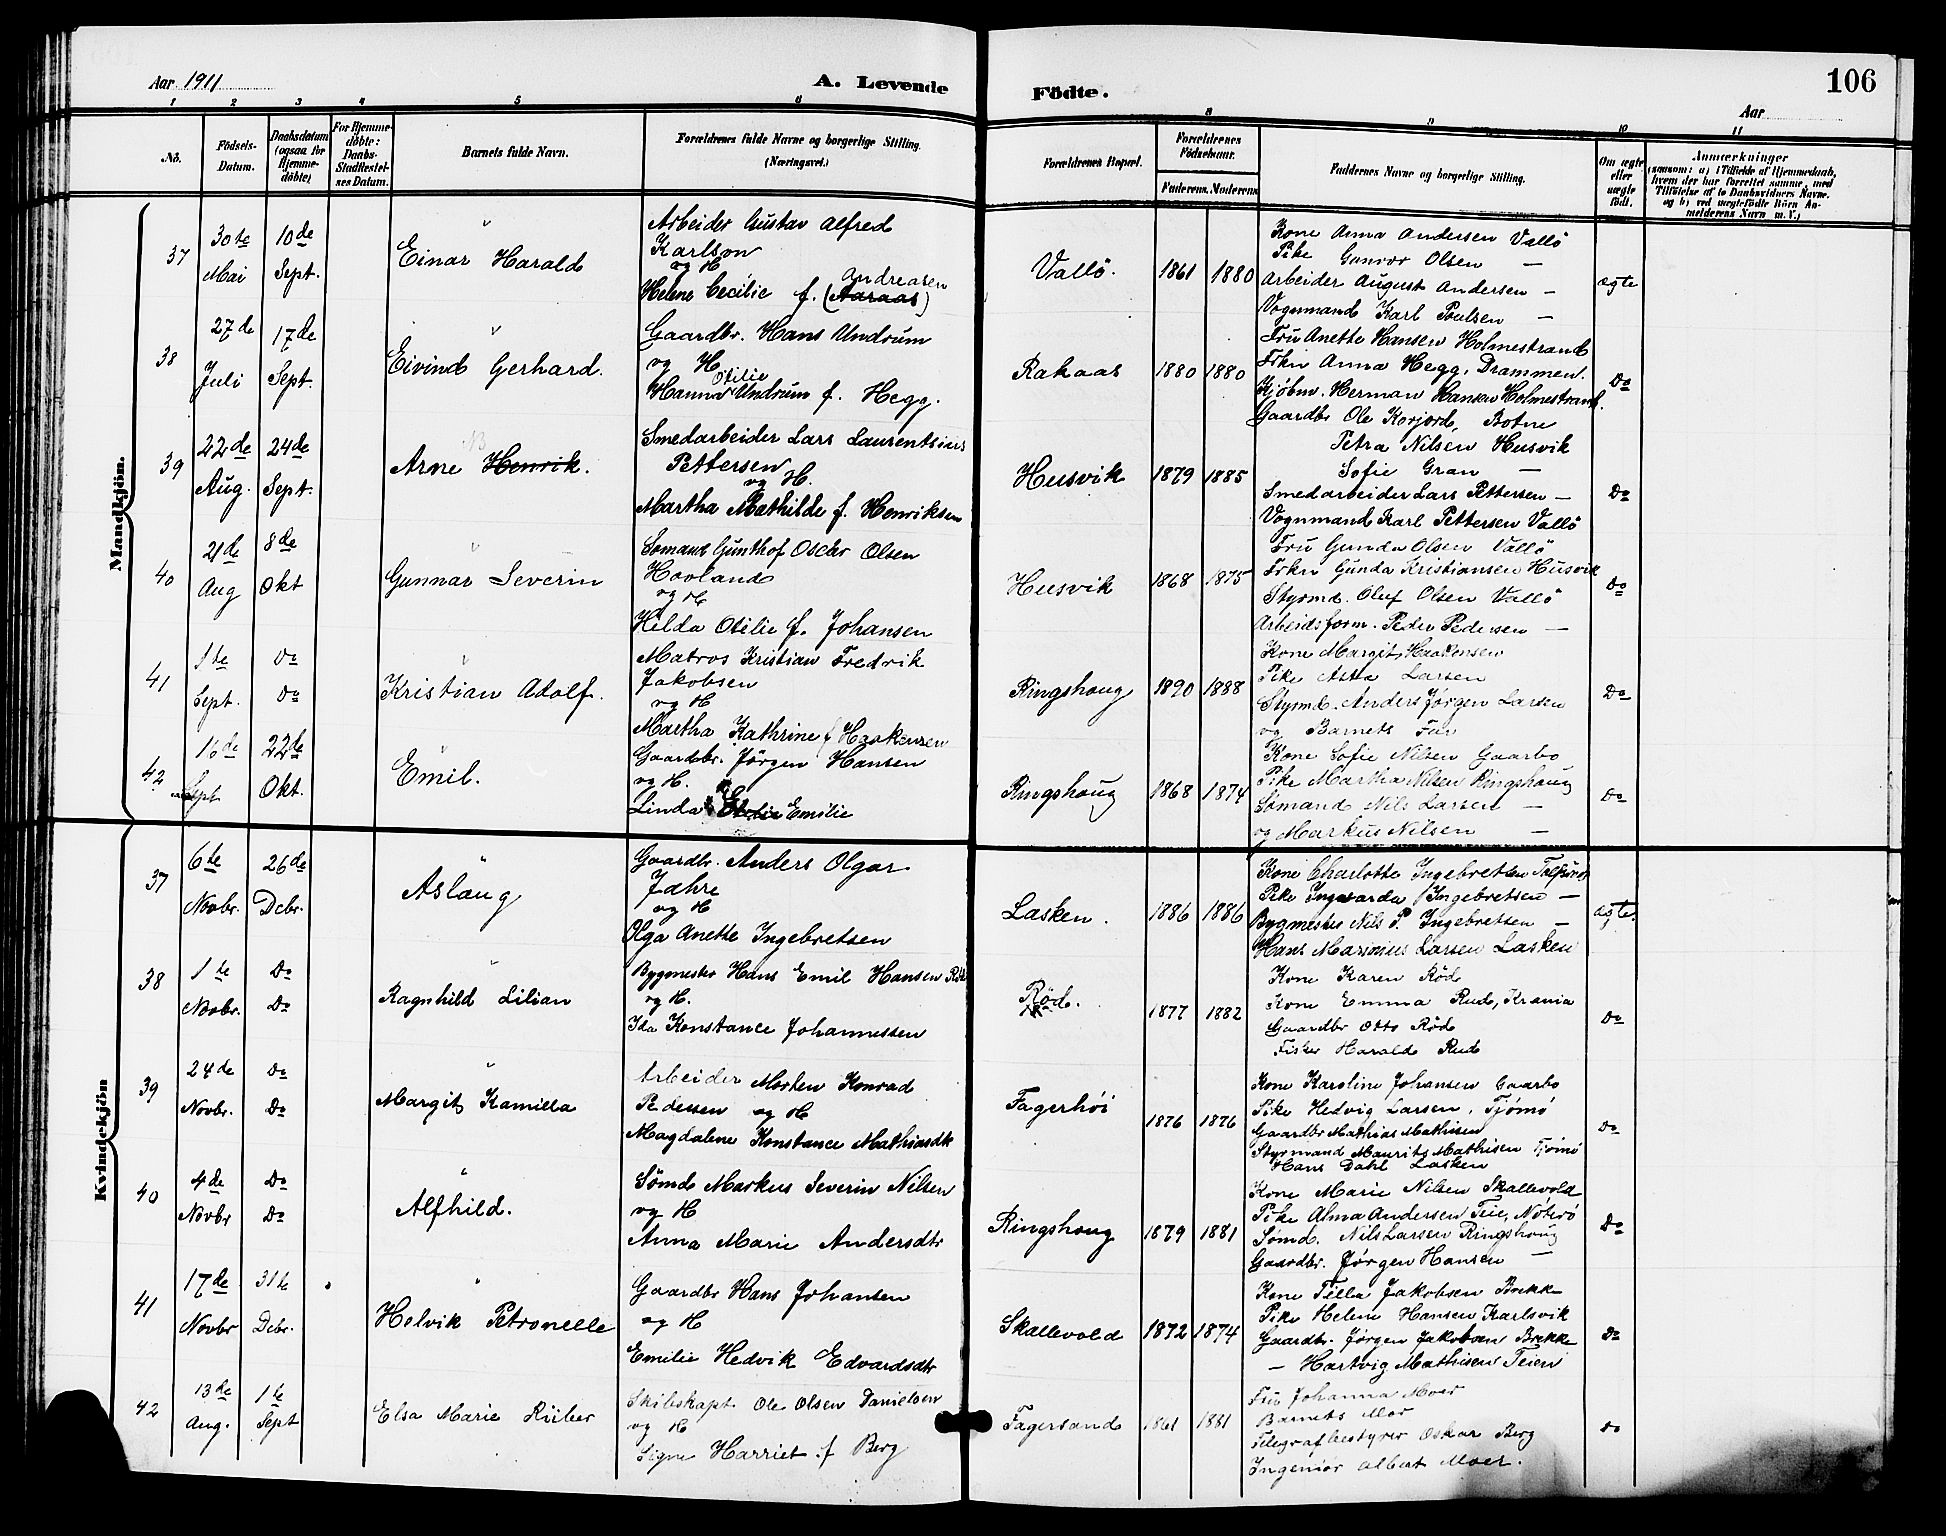 Aar 1911
A. Levende Födte.
106
Aar
1 2 3 4 5 6 8 9 10 11
No.
Födsels-Datum.
Daabsdatum (ogsaa for Hjemme-döbte)
For Hjemme-döbte: Daabs-Stadfæstel-ses Datum.
Barnets fulde Navn.
Forældrenes fulde Navne og borgerlige Stilling. (Næringsvei.)
Forældrenes Bopæl.
Forældrenes Födselsaar.
Faderens. Moderens
Faddernes Navne og borgerlige Stilling.
Om ægte eller uægte födt.
Anmærkninger
(saasom: a) i Tilfælde af Hjemmedaab, hvem der har forrettet samme, med Tilföielse af to Daabsvidners Navne, og b) ved uægtefödte Börn An-melderens Navn m. V.)
Mandkjön.
37
30te Mai
10de Sept.
Einar Harald
Arbeider Gustav Alfred
Karlson
og H
Helene Cecilie f. (Aaraas) Andreasen
Vallö.
1861 1880
Kone Anna Andersen Vallö
Pike Gunvor Olsen —
Arbeider August Andersen —
Vognmand Karl Poulsen —
ægte
38
27de Juli
17de Sept.
Eivind Gerhard.
Gaardbr. Hans Undrum
og H
Hanna Otilie Undrum f. Hegg.
Rakaas
1880 1880
Fru Anette Hansen Holmestrand
Frkn Anna Hegg, Drammen.
Kjöbm. Herman Hansen Holmestrand.
Gaardbr Ole Korjord, Botne
Do
39
22de Aug.
24de Sept.
Arne Henrik.
Smedarbeider Lars Laurentsius
Pettersen
og H.
Martha Mathilde f. Henriksen
Husvik
1879 1885
Petra Nilsen Husvik
Sofie Gran —
Smedarbeider Lars Pettersen —
Vognmand Karl Pettersen Vallö
Do
40
21de Aug
8de Okt
Gunnar Severin
Sömand Gunthof Oscar Olsen
Hovland
og H
Hilda Otilie f. Johansen
Husvik
1868 1875
Fru Gunda Olsen Vallö
Frkn Gunda Kristiansen Husvik
Styrmd. Oluf Olsen Vallö
Arbeidsform. Peder Pedersen —
Do
41
1te Sept.
Do Do
Kristian Adolf.
Matros Kristian Fredrik
Jakobsen
og H
Martha Kathrine f Haakensen
Ringshoug
1890 1888
Kone Margit Haakensen
Pike Asta Larsen
Styrmd. Anders Jørgen Larsen
og Barnets Far
Do
42
16de Sept
22de Okt.
Emil.
Gaardbr. Jørgen Hansen
og H.
Linda Emilie
Ringshoug
1868 1874
Kone Sofie Nilsen Gaarbo
Pike Martha Nilsen Ringshoug
Sömand Nils Larsen —
og Markus Nilsen —
Do
Kvindekjön
37
6te Novbr.
26de Debr.
Aslaug
Gaardbr. Anders Olgar
Jahre
og H
Olga Anette Ingebretsen
Lasken.
1886 1886
Kone Charlotte Ingebretsen
Pike Ingvarda Ingebretsen —
Bygmester Nils P. Ingebretsen —
Hans Marinius Larsen Lasken
ægte
38
1te Novbr.
Do Do
Ragnhild Lilian
Bygmester Hans Emil Hansen
og H.
Ida Konstance Johannessen
Röd.
1877 1882
Kone Karen Röd
Kone Emma Rud, Krania
Gaardbr Otto Röd
Fisker Harald Rud
Do
39
24de Novbr.
Do Do
Margit Kamilla
Arbeider Morten Konrad
Pedersen og H
Magdalene Konstance Mathiasdtr
Fagerhöi
1876 1876
Kone Karoline Johansen Gaarbo
Pike Hedvig Larsen, Tjömö
Gaardbr Mathias Mathisen
Styrmand Maurits Mathisen Tjömö
Hans Dahl Lasken
Do
40
4de Novbr
Do Do
Alfhild.
Sömd Markus Severin Nilsen
og H
Anna Marie Andersdtr
Ringshoug
1879 1881
Kone Marie Nilsen Skallevold
Pike Alma Andersen Teie, Nöterö
Sömd. Nils Larsen Ringshoug
Gaardbr. Jørgen Hansen —
Do
41
17de Novbr
31te Debr.
Helvik Petronelle
Gaardbr Hans Johansen
og H
Emilie Hedvik Edvardsdtr
Skallevold
1872 1874
Kone Tilla Jakobsen Brekke
Pike Helene Hansen Karlsvik
Gaardbr. Jørgen Jakobsen Brekke
— Hartvig Mathisen Teien
Do
42
13de Aug.
1te Sept
Elsa Marie Rüber
Skibskapt. Ole Olsen Danielsen
og H
Signe Harriet f Berg
Fagersand
1861 1881
Fru Johanna Moer
Barnets Mor
Telegrafbestyrer Oskar Berg
Ingeniör Albert Moer.
Do